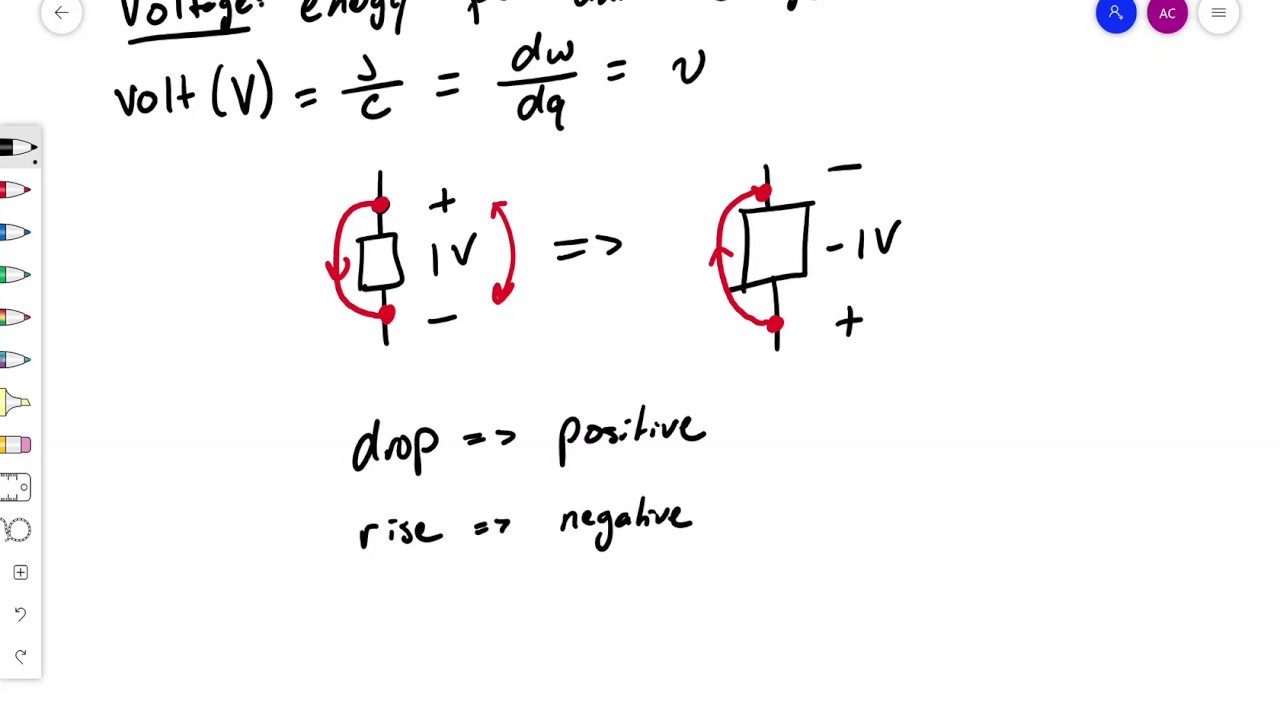 Voltage: energy
volt (V) = J/C = dw/dq = v
+ +
1V => -1V
- -
drop => positive
rise => negative
AC